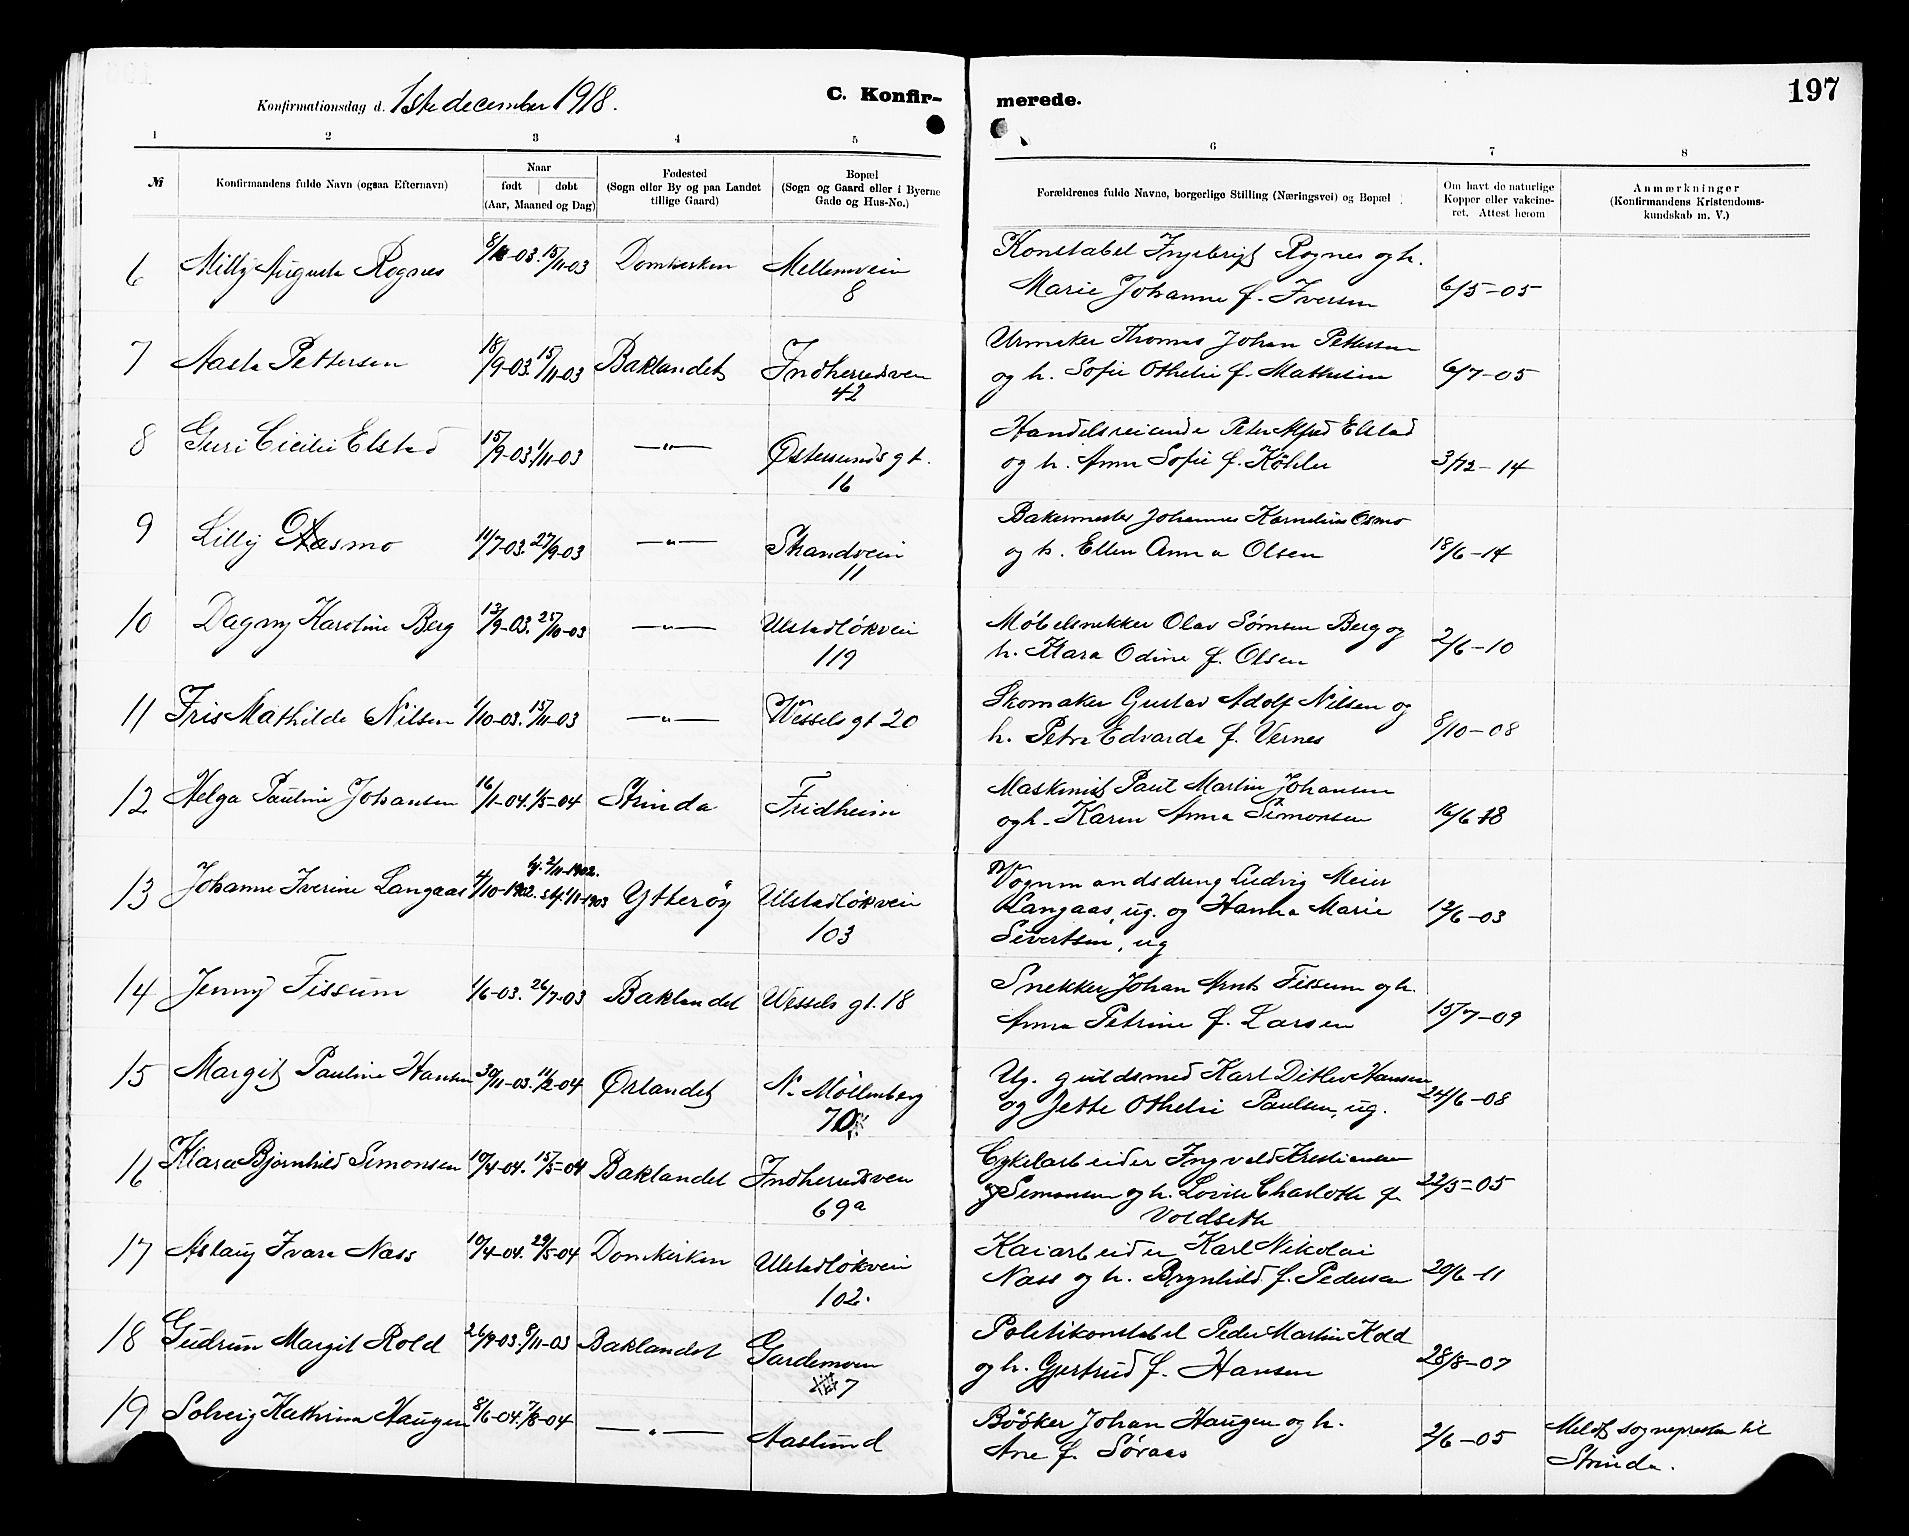 Konfirmationsdag d. 1ste december 1918.
C. Konfir-
merede.
197
1 2 3 4 5 6 7 8
№
Konfirmandens fulde Navn (ogsaa Efternavn)
Naar
født | døbt
(Aar, Maaned og Dag)
Fødested
(Sogn eller By og paa Landet
tillige Gaard)
Bopæl
(Sogn og Gaard eller i Byerne
Gade og Hus-No.)
Forældrenes fulde Navne, borgerlige Stilling (Næringsvei) og Bopæl
Om havt de naturlige
Kopper eller vakcine-
ret. Attest herom
Anmærkninger
(Konfirmandens Kristendoms-
kundskab m. V.)
6 Milly Augusta Rognes 15/11-03 Domkirken Mellemveien
8
Konstabel Ingebrigt Rognes og h.
Marie Johanne f. Iversen 6/5-05
7 Aasta Pettersen 18/9-03. 15/11-03 Baklandet Indherredsveien
42
Urmaker Thomas Johan Pettersen
og h. Sofie Othelie f. Mathisen 6/7-05
8 Guri Cicilie Elstad 15/9-03. 1/11-03 —"— Østersundsgt.
16
Handelsreisende Peter Alfred Elstad
og h. Anna Sofie f. Köhler 3/12-14
9 Lilly Aasmo 11/7-03. 27/9-03 —"— Strandveien
11
Bakermester Johannes Kornelius Osmo
og h. Ellen Anna Olsen 18/6-14
10 Dagny Karoline Berg 13/9-03. 25/10-03 —"— Ulstadløkveien
119
Møbelsnekker Olav Sørnsen Berg og
h. Klara Odine f. Olsen 2/6-10
11 Iris Mathilde Nilsen 1/10-03. 15/11-03 —"— Wessels gt 20
Skomaker Gustav Adolf Nilsen og
h. Petra Edvarda f. Vernes 8/10-08
12 Helga Pauline Johansen 16/1-04. 1/5-04 Strinda Fridheim
Maskinist Paul Martin Johansen
og h. Karen Anna Simonsen 16/6-18
13 Johanne Iverine Langaas 4/10-1902. hj. 2/11-1902. stf. 1/11-1903 Ytterøy Ulstadløkveien
103
Vognmandsdreng Ludvig Meier
Langaas, ug. og Hanna Marie
Sivertsen, ug 12/6-03
14 Jenny Fissum 1/6-03. 26/7-03 Baklandet Wessels gt. 18
Snekker Johan Arnt Fissum og h.
Anna Petrine f. Larsen 15/7-09
15 Margit Pauline Hansen 30/11-03. 11/2-04 Ørlandet N. Möllenberg
70
Ug. guldsmed Karl Ditlev Hansen
og Jette Othelie Paulsen, ug. 24/6-08
16 Klara Bjørnhild Simonsen 10/4-04. 15/5-04 Baklandet Indherredsveien
69a
Cykelarbeider Ingvald Kristiansen
Simonsen og h. Lovise Charlotte f.
Voldseth 22/5-05
17 Aslaug Ivara Nass 10/4-04. 29/5-04 Domkirken Ulstadløkveien
102.
Kaiarbeider Karl Nikolai
Nass og h. Brynhild f. Pedersen 20/6-11
18 Gudrun Margit Kold 26/9-03. 8/11-03 Baklandet Gardemoen
7
Politikonstabel Peder Martin Kold
og h. Gjertrud f. Hansen 28/8-07
19 Solveig Kathrine Haugen 8/6-04. 7/8-04 —"— Aaslund
Bøsker Johan Haugen og h.
Ane f. Søraas 2/6-05 Meldt sognepresten til
Strinda.